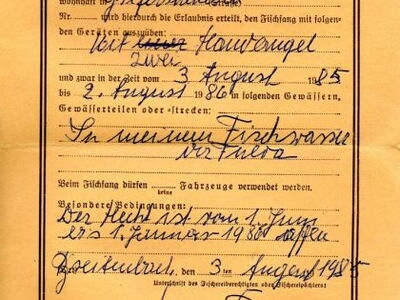 wohnhaft in
Nr. wird hierdurch die Erlaubnis erteilt, den Fischfang mit folgen-
den Geräten auszuüben:
Mit einer Handangel
zwei
und zwar in der Zeit vom 3 August 1985
bis 2. August 1986 in folgenden Gewässern,
Gewässerteilen oder =strecken:
In meinem Fischwasser
der Fulda
Beim Fischfang dürfen keine Fahrzeuge verwendet werden.
Besondere Bedingungen:
Der Hecht ist vom 1. Juni
bis 1. Januar 1986 offen
Breitenbach, den 3 ten August 1985
Unterschrift des Fischereiberechtigten oder Fischereipächters: